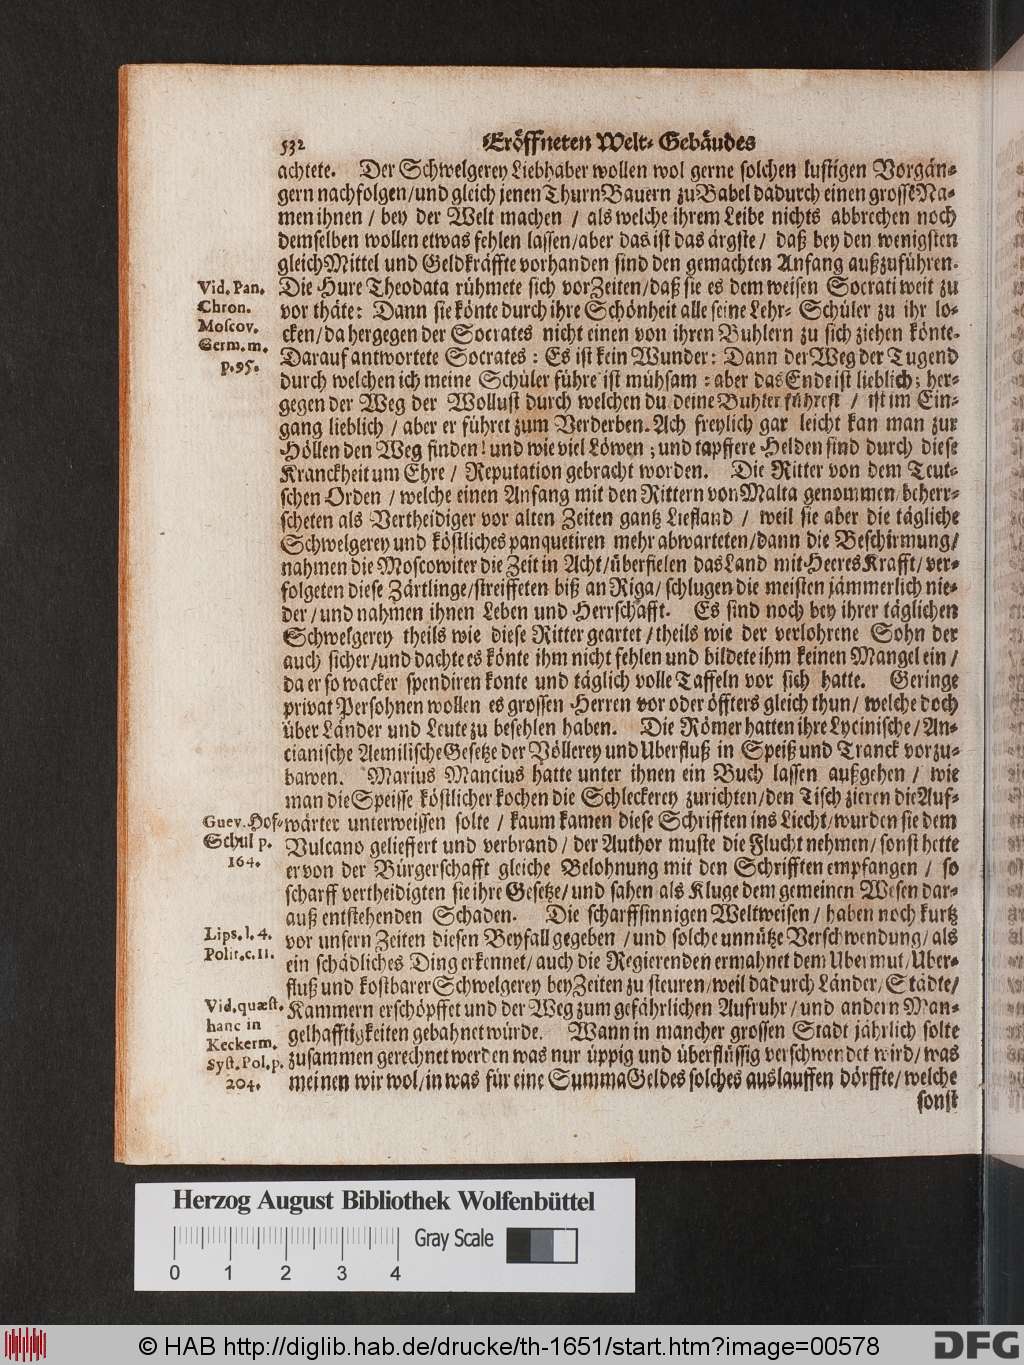 532 Eröffneten Welt-Gebäudes
achtete. Der Schwelgerey Liebhaber wollen wol gerne solchen lustigen Vorgän-
gern nachfolgen/und gleich jenen ThurnBauern zu Babel dadurch einen grosse Na-
men ihnen / bey der Welt machen / als welche ihrem Leibe nichts abbrechen noch
demselben wollen etwas fehlen lassen/aber das ist das ärgste / daß bey den wenigsten
gleich Mittel und Geldkräffte vorhanden sind den gemachten Anfang außzuführen.
Vid. Pan.
Chron.
Moscov.
Germ. m.
p. 95.
Die Hure Theodata rühmete sich vor Zeiten/daß sie es dem weisen Socrati weit zu
vor thäte: Dann sie könte durch ihre Schönheit alle seine Lehr-Schüler zu ihr lo-
cken/da hergegen der Socrates nicht einen von ihren Buhlern zu sich ziehen könte.
Darauf antwortete Socrates: Es ist kein Wunder: Dann der Weg der Tugend
durch welchen ich meine Schüler führe ist mühsam: aber das Ende ist lieblich; her-
gegen der Weg der Wollust durch welchen du deine Buhler führest / ist im Ein-
gang lieblich / aber er führet zum Verderben. Ach freylich gar leicht kan man zur
Höllen den Weg finden! und wie viel Löwen; und tapffere Helden sind durch diese
Kranckheit um Ehre / Reputation gebracht worden. Die Ritter von dem Teut-
schen Orden / welche einen Anfang mit den Rittern von Malta genommen/beherr-
scheten als Vertheidiger vor alten Zeiten gantz Liefland / weil sie aber die tägliche
Schwelgerey und köstliches panquetiren mehr abwarteten/dann die Beschirmung/
nahmen die Moscowiter die Zeit in Acht/überfielen das Land mit Heeres Krafft/ver-
folgeten diese Zärtlinge/streiffeten biß an Riga/schlugen die meisten jämmerlich nie-
der/und nahmen ihnen Leben und Herrschafft. Es sind noch bey ihrer täglichen
Schwelgerey theils wie diese Ritter geartet/theils wie der verlohrene Sohn der
auch sicher/und dachte es könte ihm nicht fehlen und bildete ihm keinen Mangel ein/
da er so wacker spendiren konte und täglich volle Taffeln vor sich hatte. Geringe
privat Persohnen wollen es grossen Herren vor oder öffters gleich thun/welche doch
über Länder und Leute zu befehlen haben. Die Römer hatten ihre Lycinische/An-
cianische Aemilische Gesetze der Völlerey und Uberfluß in Speiß und Tranck vorzu-
bawen. Marius Mancius hatte unter ihnen ein Buch lassen außgehen / wie
man die Speisse köstlicher kochen die Schleckerey zurichten/den Tisch zieren die Auf-
Guev. Hof-
Schul p.
164.
wärter unterweissen solte / kaum kamen diese Schrifften ins Liecht/wurden sie dem
Vulcano gelieffert und verbrand / der Author muste die Flucht nehmen/sonst hette
er von der Bürgerschafft gleiche Belohnung mit den Schrifften empfangen / so
scharff vertheidigten sie ihre Gesetze/und sahen als Kluge dem gemeinen Wesen dar-
auß entstehenden Schaden. Die scharffsinnigen Weltweisen / haben noch kurtz
Lips. l. 4.
Polit. c. 11.
vor unsern Zeiten diesen Beyfall gegeben / und solche unnütze Verschwendung/als
ein schädliches Ding erkennet/auch die Regierenden ermahnet dem Ubermut/Uber-
fluß und kostbarer Schwelgerey bey Zeiten zu steuren/weil dadurch Länder/Städte/
Vid. quæst.
hanc in
Keckerm.
Syst. Pol. p.
204.
Kammern erschöpffet und der Weg zum gefährlichen Aufruhr/und andern Man-
gelhafftigkeiten gebahnet würde. Wann in mancher grossen Stadt jährlich solte
zusammen gerechnet werden was nur üppig und überflüssig verschwendet wird/was
meinen wir wol/in was für eine Summa Geldes solches auslauffen dörffte/welche
sonst
Herzog August Bibliothek Wolfenbüttel
0 1 2 3 4 Gray Scale
© HAB http://diglib.hab.de/drucke/th-1651/start.htm?image=00578
DFG